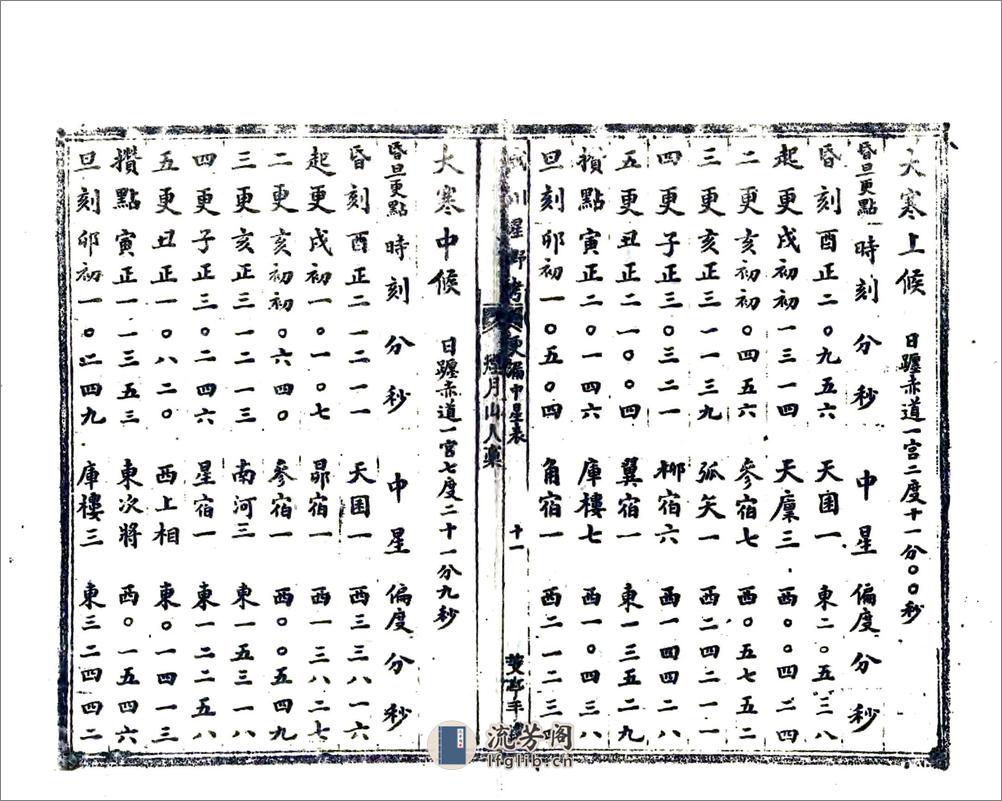 大寒上候 日躔赤道一宮二度十一分〇〇秒
昏旦更點 時刻分秒 中星 偏度分秒
昏刻酉正二〇九五六 天囷一 東二〇五三八
起更戌初初一三一四 天廩三 西〇〇四二四
二更亥初初〇四五六 參宿七 西〇〇五七五二
三更亥正三一一三九 弧矢一 西二四二一一
四更子正三〇三二一 柳宿六 西一四四二八
五更丑正二一〇〇四 翼宿一 東一三五二九
攢點寅正二〇一四六 庫樓七 西一〇四三八
旦刻卯初一〇五〇四 角宿一 西二一二三
星野考 更漏中星表 十一
煙月山人稾
大寒中候 日躔赤道一宮七度二十一分九秒
昏旦更點 時刻分秒 中星 偏度分秒
昏刻酉正二一二一一 天囷一 西三三八一六
起更戌初一〇一〇七 昴宿一 西一三八二七
二更亥初初〇六四〇 參宿一 西〇〇五四九
三更亥正三一二一三 南河三 東一五三一八
四更子正三〇二四六 星宿一 東一二二五八
五更丑正一〇八二〇 西上相 東〇一四一三
攢點寅正一一三五三 東次將 西〇一五四六
旦刻卯初一〇二四九 庫樓三 東三二四四二
流芳閣
lfglib.cn